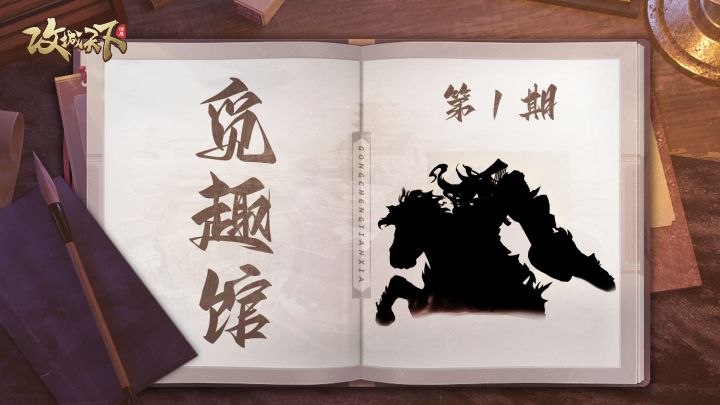 攻城天下
觅趣馆
第1期
GONGCHENGTIANXIA